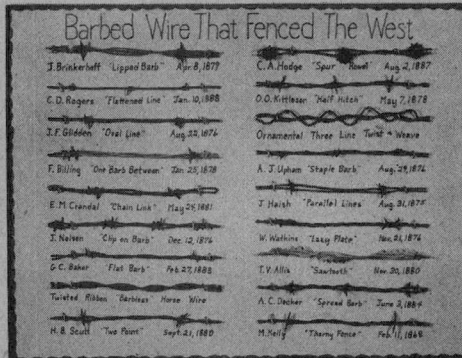 Barbed Wire That Fenced The West
J. Brinkerhoff "Lipped Barb" Apr. 8, 1879
C. D. Rogers "Flattened Line" Jan. 10, 1888
J. F. Glidden "Oval Line" Aug. 22, 1876
F. Billing "One Barb Between" Jan. 25, 1878
E. M. Crandal "Chain Link" May 24, 1881
J. Nelson "Clip on Barb" Dec. 12, 1876
G. C. Baker "Flat Barb" Feb 27, 1883
Twisted Ribbon "Barbless" Horse Wire
H. B. Scutt "Two Point" Sept. 21, 1880
C. A. Hodge "Spur Rowel" Aug. 2, 1887
O. O. Kittleson "Half Hitch" May 7, 1878
Ornamental Three Line Twist + Weave
A. J. Upham "Staple Barb" Aug. 1876
J. Haish "Parallel Lines" Aug. 31, 1875
W. Watkins "Lazy Plate" Nov. 21, 1876
T. V. Allis "Sawtooth" Nov. 30, 1880
A. C. Decker "Spread Barb" June 3, 1884
M. Kelly "Thorny Fence" Feb. 11, 1868